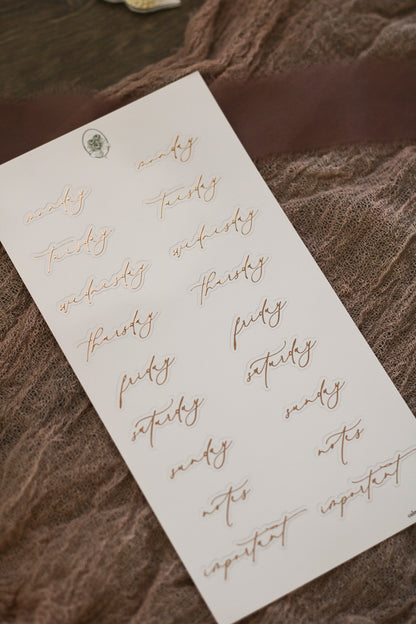 monday monday
tuesday tuesday
wednesday wednesday
thursday thursday
friday friday
saturday saturday
sunday sunday
notes notes
important important